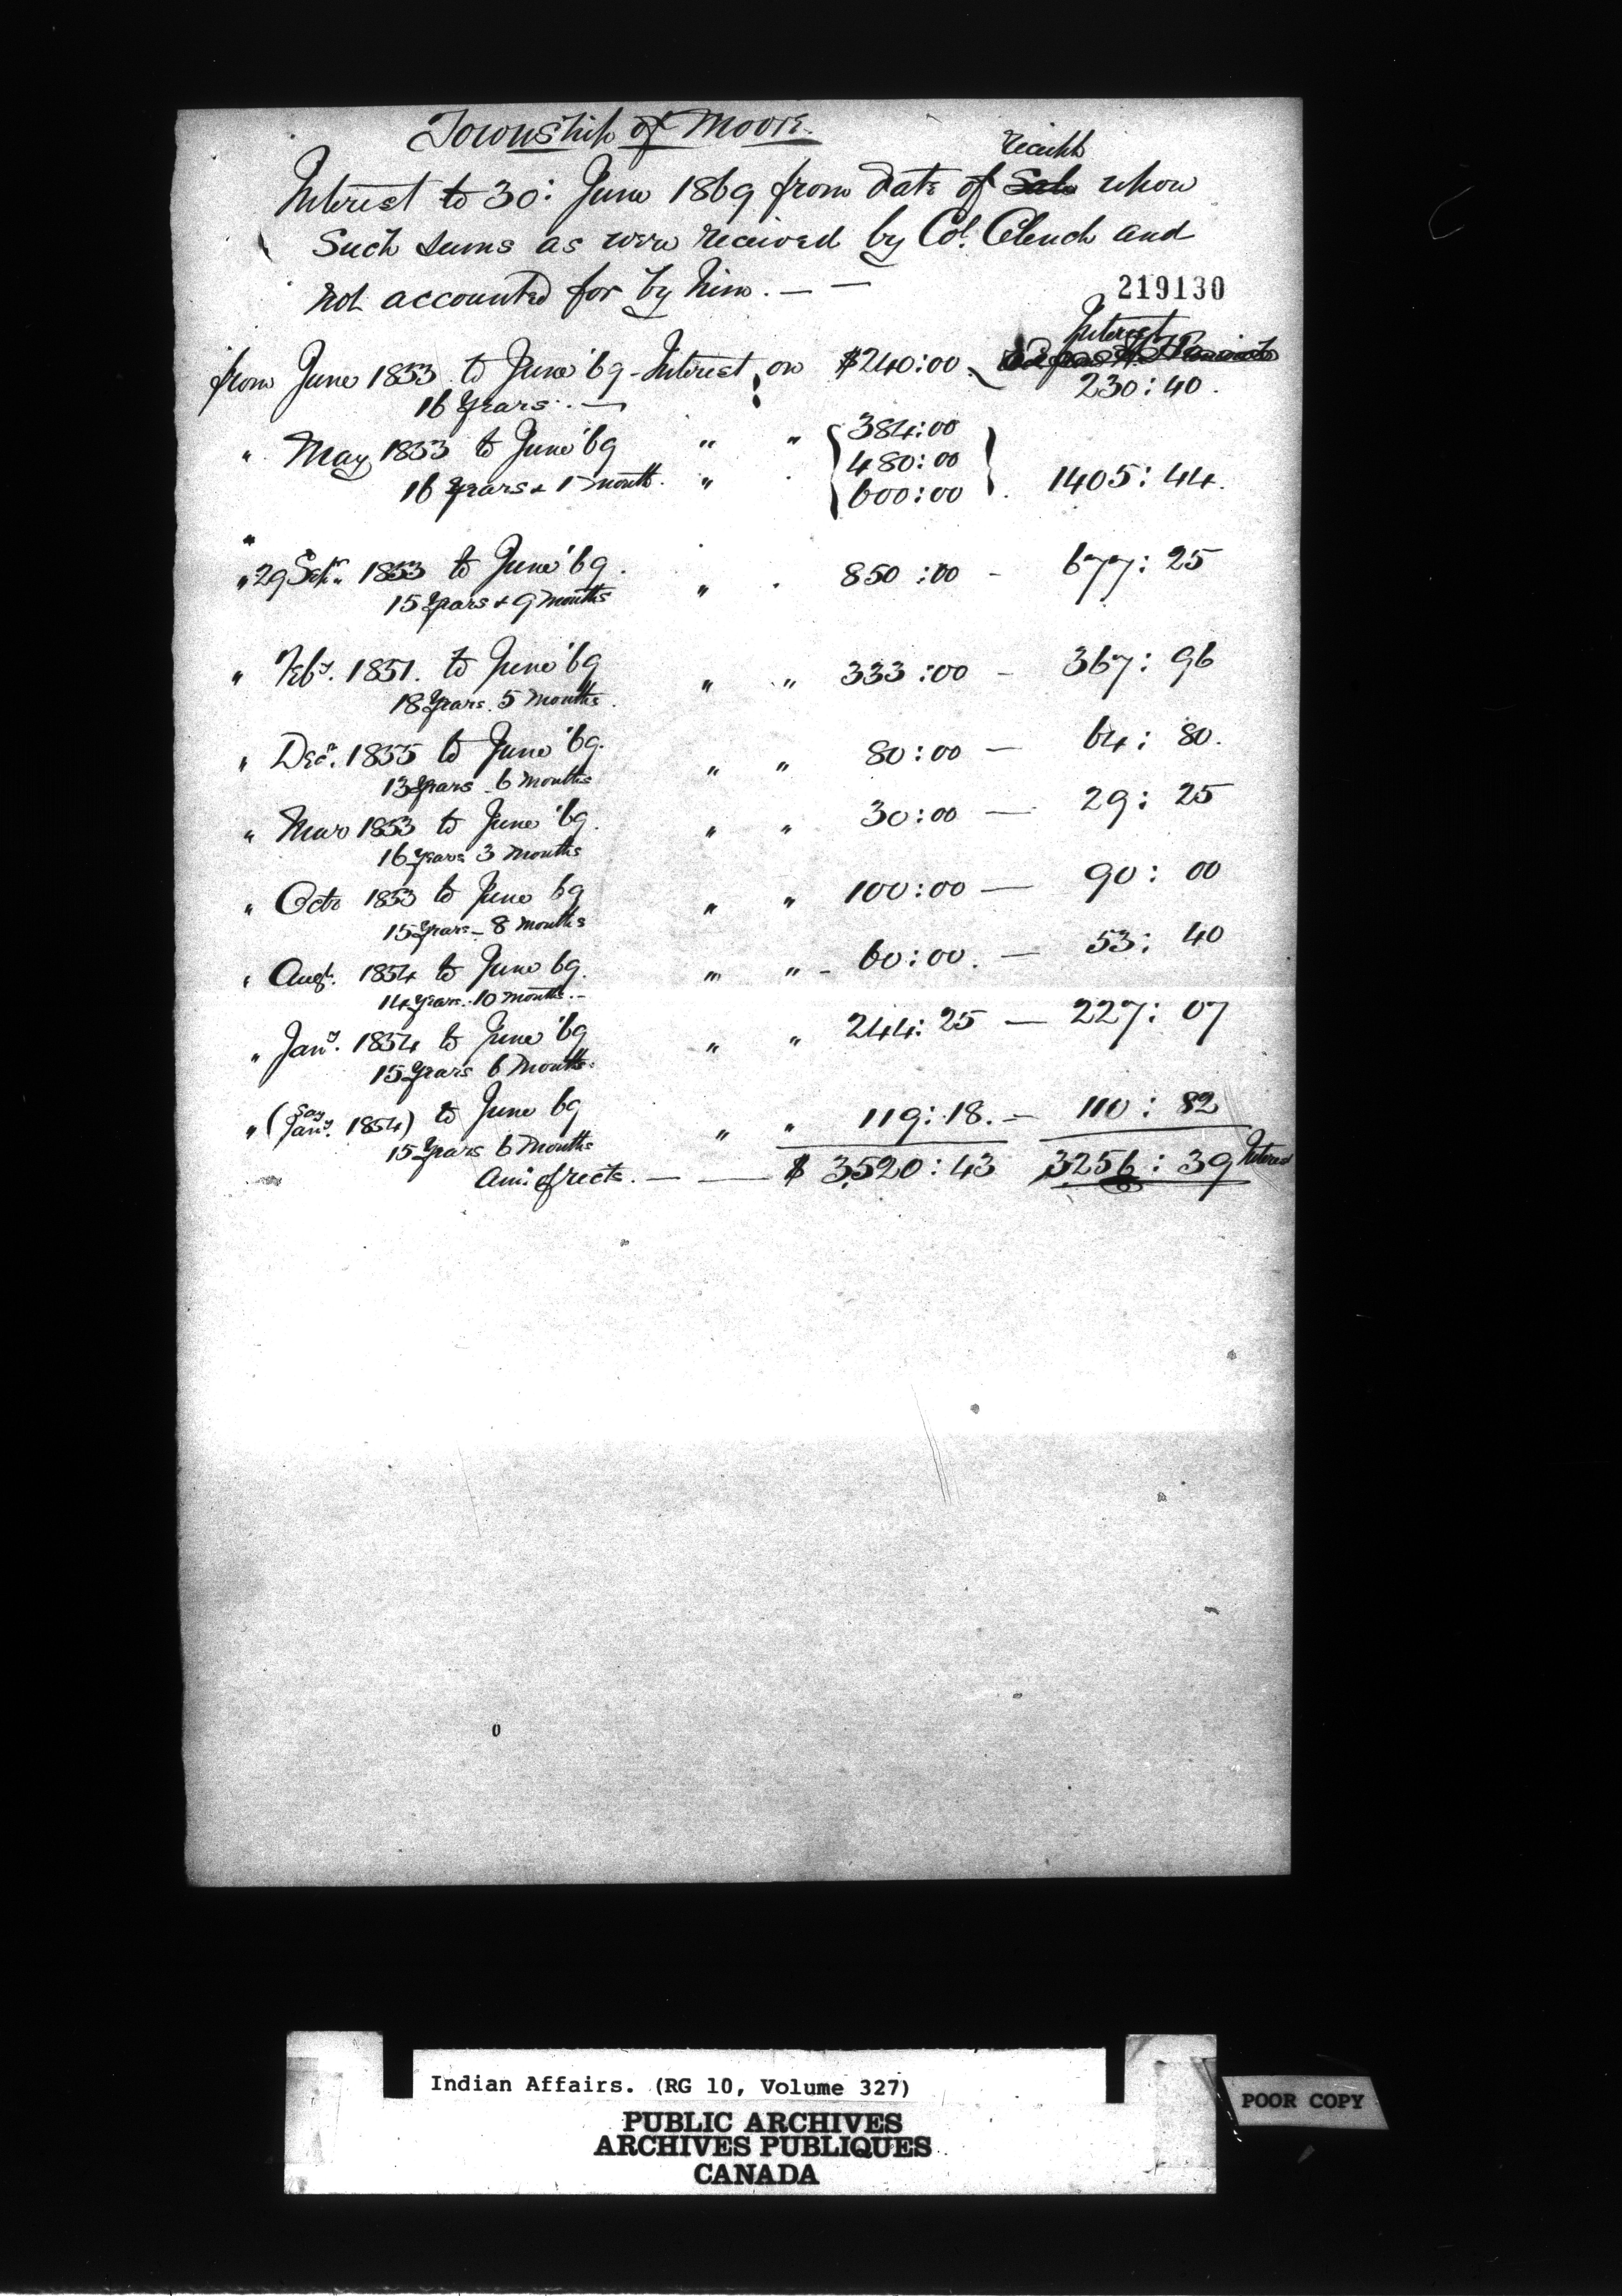 Township of Moore.
receipt
Interest to 30: June 1869 from date of Sale upon
Such sums as were received by Col. Clench and
not accounted for by him. — —
219130
Interest
from June 1853 to June '69 - Interest on $240:00. 230:40.
16 Years. —
" May 1853 to June '69 " " 384:00
480:00
16 Years & 1 month. " 600:00 1405:44.
" 29 Sepr. 1853 to June '69. " . 850:00 - 677:25
15 Years & 9 months
" Feby. 1851. to June '69 " " 333:00 - 367:96
18 Years. 5 Months.
" Decr. 1855 to June '69. " " 80:00 — 64:80.
13 Years 6 months
" Mar 1853 to June '69. " " 30:00 — 29:25
16 Years 3 Months
" Octr 1853 to June 69 " " 100:00 — 90:00
15 Years - 8 Months
" Augt. 1854 to June 69. " " - 60:00. — 53:40
14 Years. 10 months. -
" Jany. 1854 to June '69 " " 244:25 — 227:07
15 Years 6 Months.
" (say Jany. 1854) to June 69 " " 119:18. — 110:82
15 Years 6 Months
Amt. of rects. — — $ 3,520:43 3,256:39 Interest
0
Indian Affairs. (RG 10, Volume 327)
PUBLIC ARCHIVES
ARCHIVES PUBLIQUES
CANADA
POOR COPY